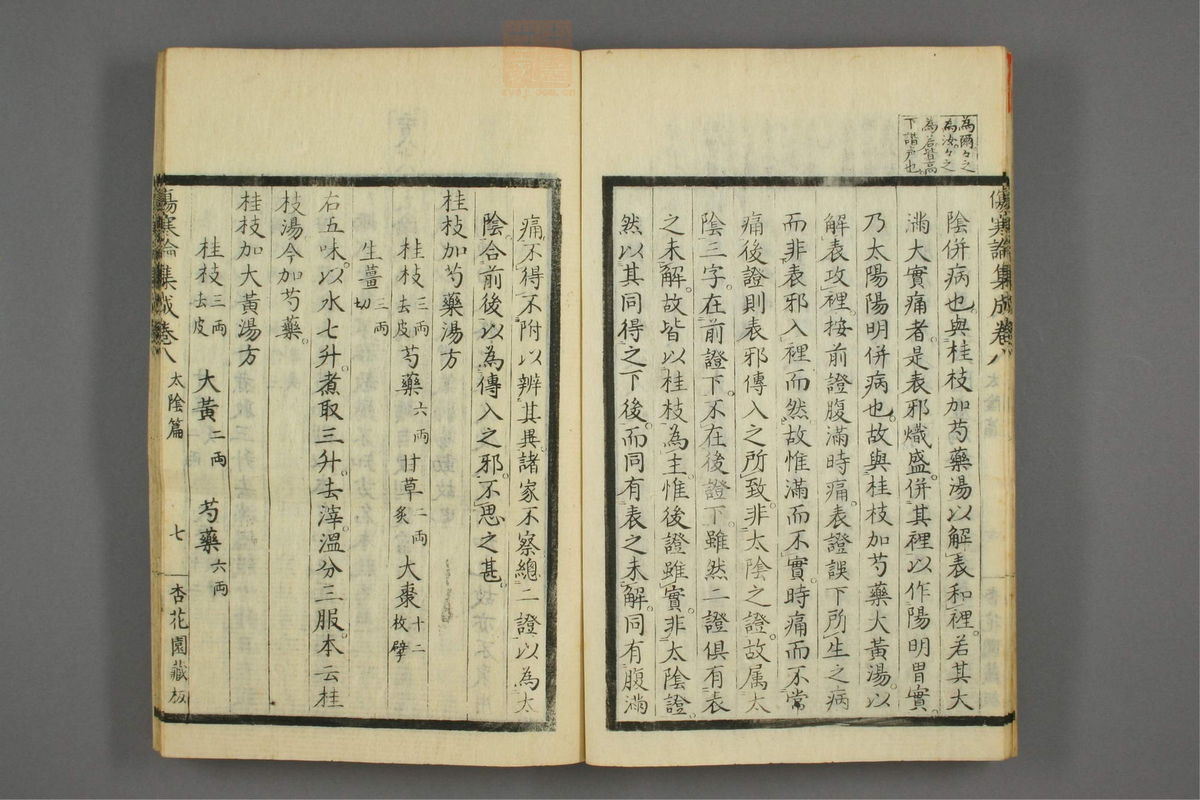 為爾々之
為汝々之
為若皆高
下諧声也
傷寒論集成卷八
陰併病也與桂枝加芍藥湯以解表和裡若其大
滿大實痛者是表邪熾盛併其裡以作陽明胃實
乃太陽陽明併病也故與桂枝加芍藥大黃湯以
解表攻裡按前證腹滿時痛表證誤下所生之病
而非表邪入裡而然故惟滿而不實時痛而不常
痛後證則表邪傳入之所致非太陰之證故属太
陰三字在前證下不在後證下雖然二證俱有表
之未解故皆以桂枝為主惟後證雖實非太陰證
然以其同得之下後而同有表之未解同有腹滿
痛不得不附以辨其異諸家不察總二證以為太
陰合前後以為傳入之邪不思之甚
桂枝加芍藥湯方
桂枝三兩去皮 芍藥六兩 甘草二兩炙 大棗十二枚擘
生薑三兩切
右五味以水七升煮取三升去滓溫分三服本云桂
枝湯今加芍藥
桂枝加大黃湯方
桂枝三兩去皮 大黃二兩 芍藥六兩
傷寒論集成卷八 太陰篇 七 杏花園藏板